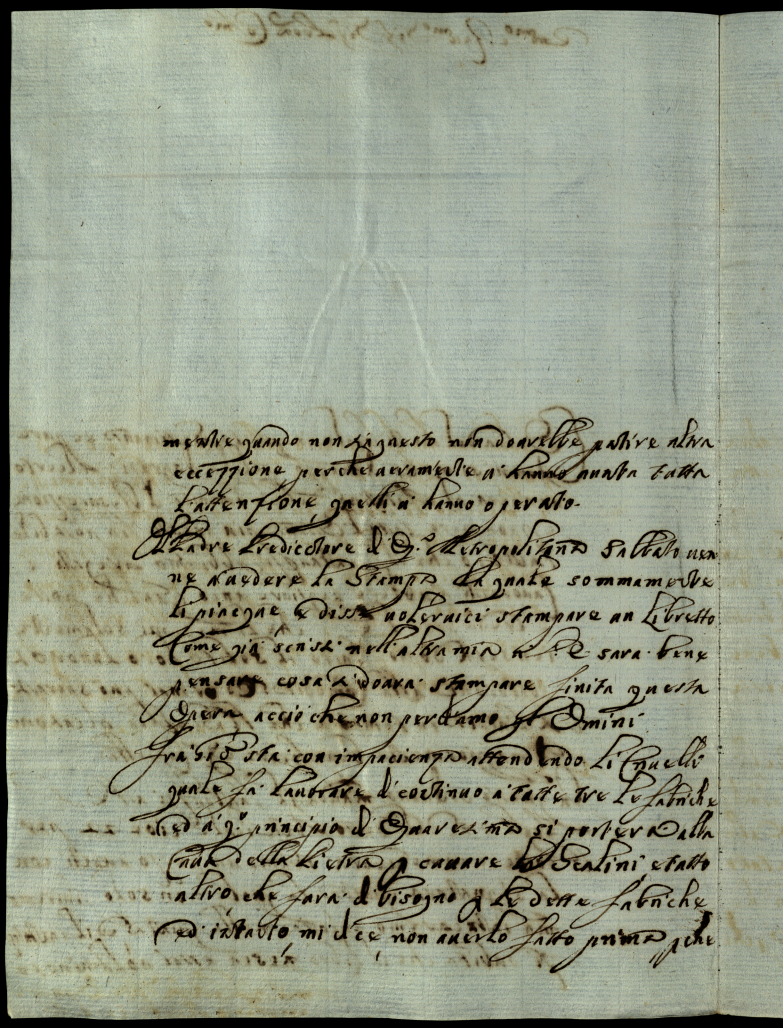 mentre quando non sia questo non dovrebbe patire altra
eccezzione perche veramente vi hanno avuta tutta
l'attenzione quelli vi hanno operato.
Il Padre Predicatore di Metropolitana Sabbato ven
ne a vedere la Stampa la quale sommamente
li piacque e disse volervici stampare un libretto
Come già scrissi nell'altra mia a V. E. sarà bene
pensare cosa si dovrà stampare finita questa
Opera acciò che non perdiamo gl'Omini
Fra Gio: sta con impacienza attendendo li
quale fà lavorare di continuo a tutte tre le fabriche
ed a q.º principio di Quaresima si porterà alla
Cava della Pietra p cavare li Scalini, e tutto
altro che farà di bisogno p le dette fabriche
ed intanto mi dice non averlo fatto prima pche